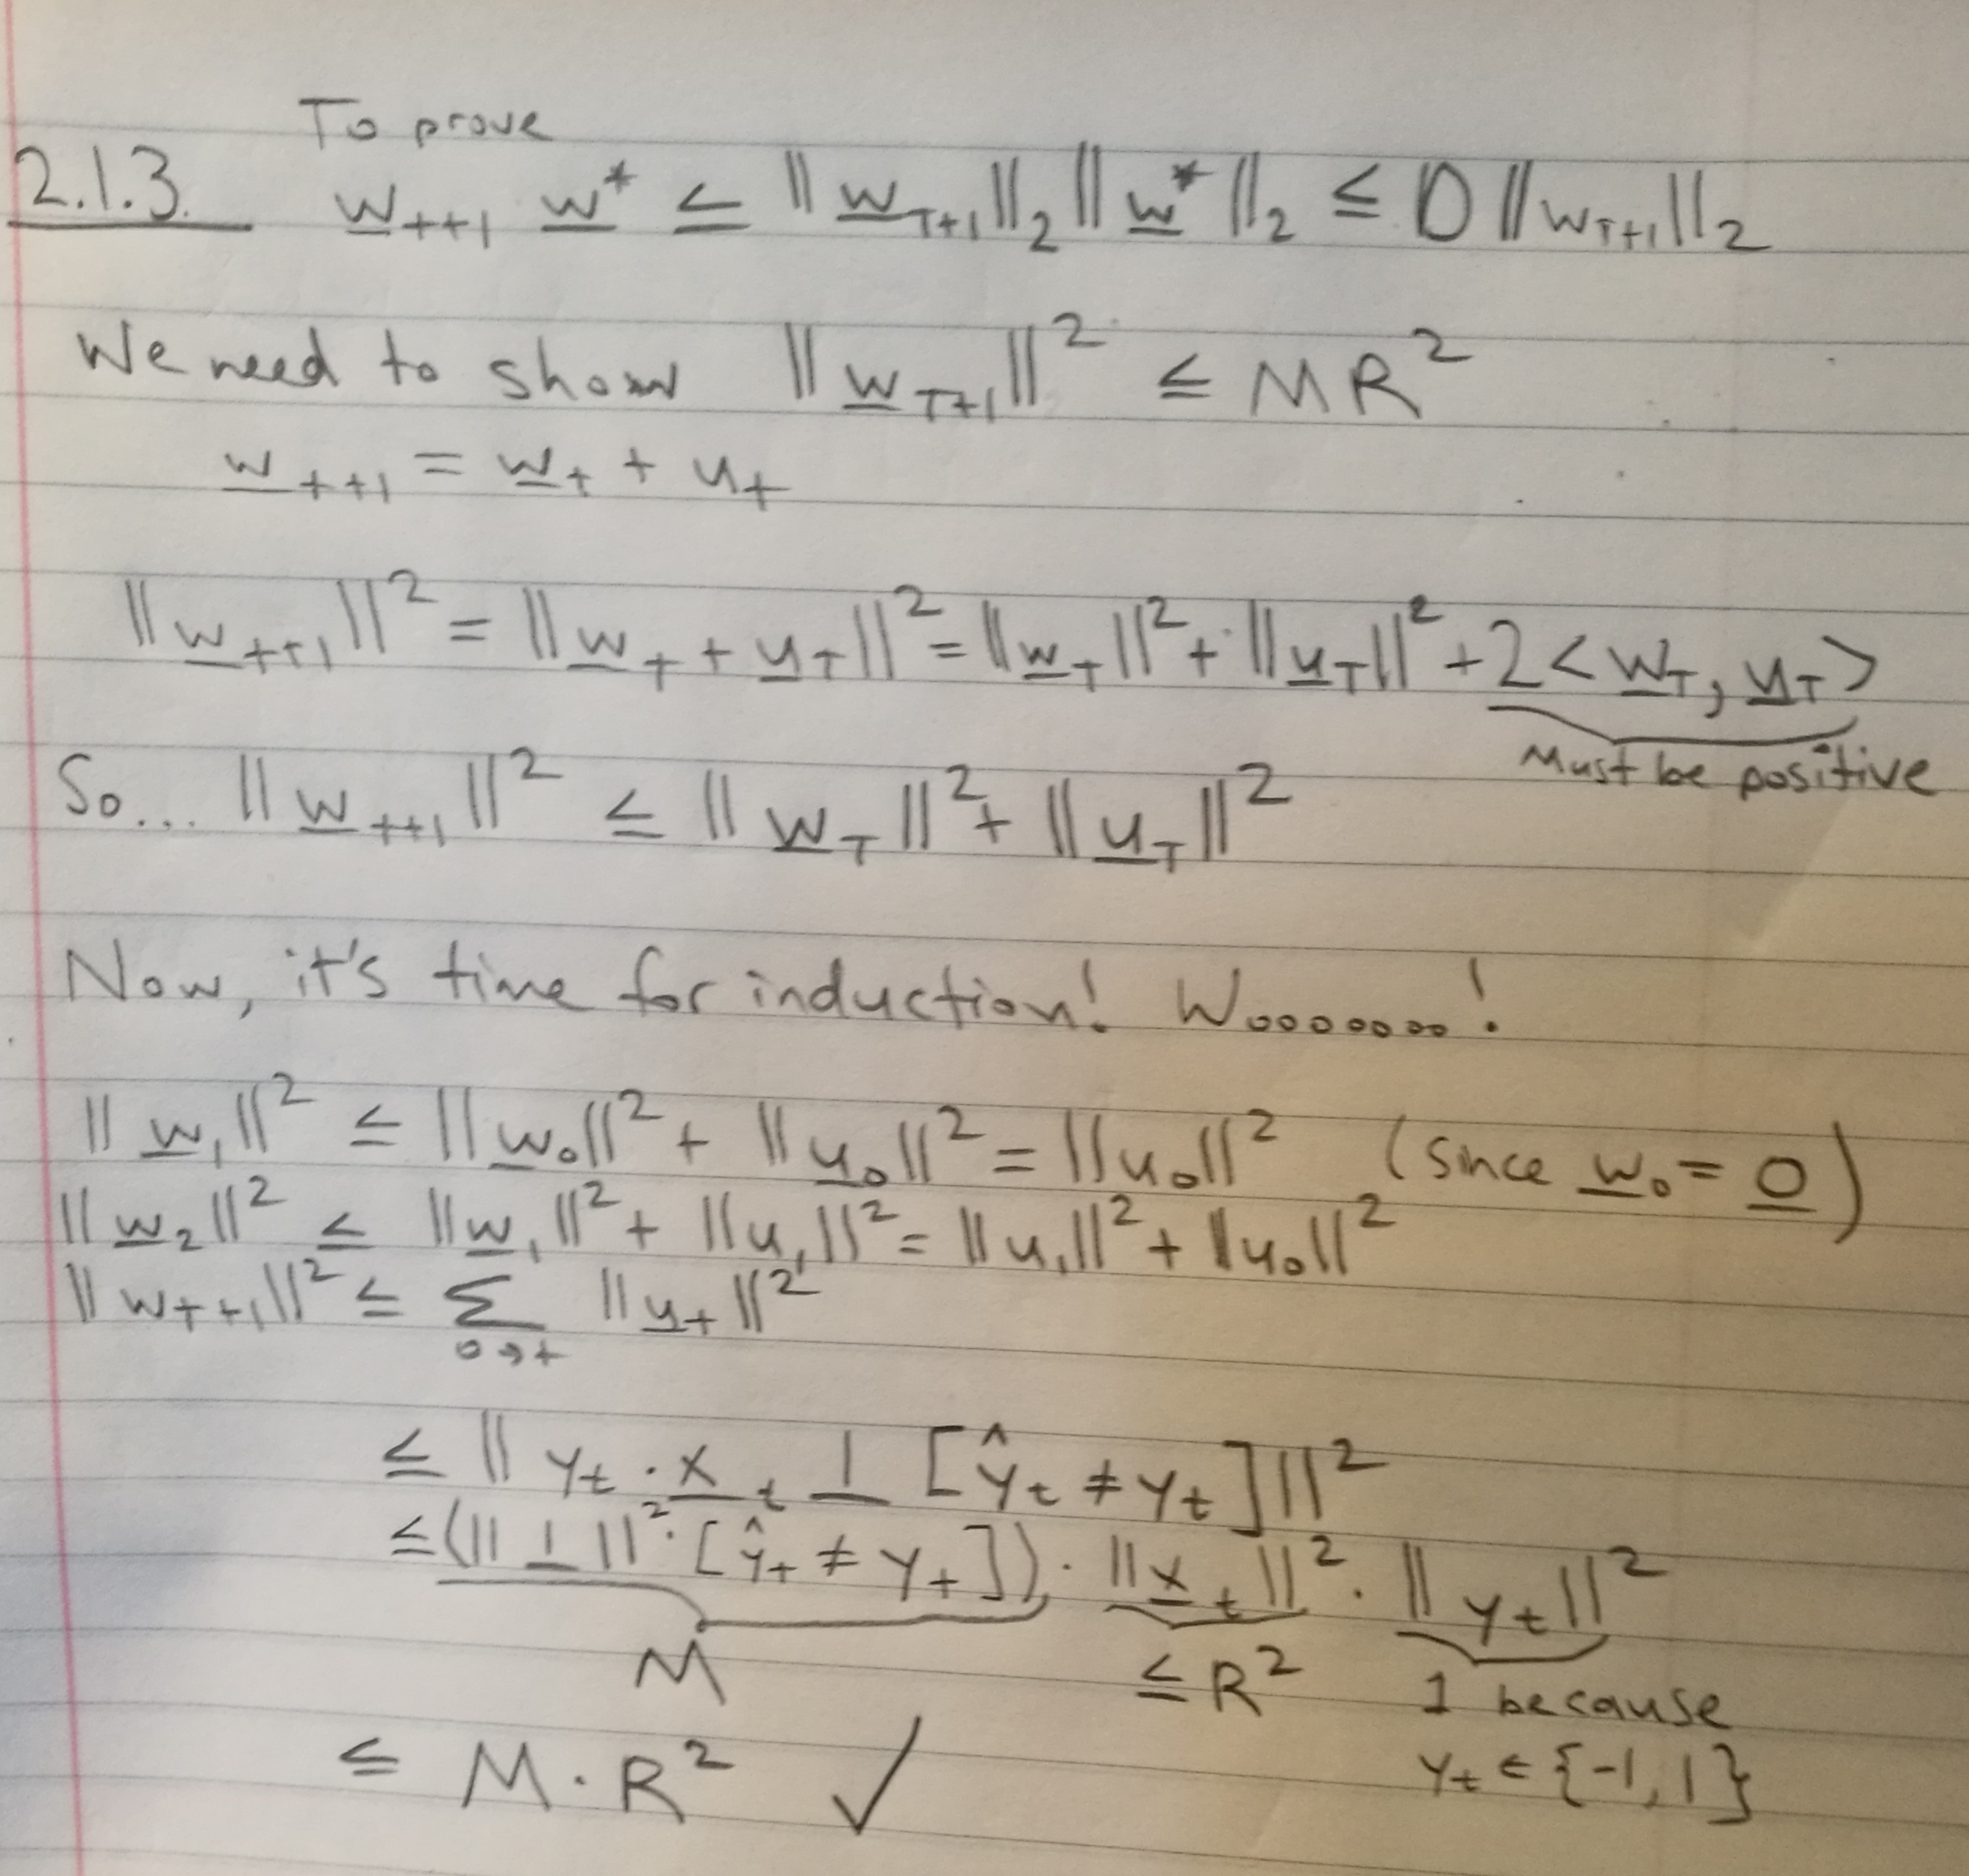 To prove
2.1.3. w_{t+1} w* ≤ ||w_{T+1}||₂ ||w*||₂ ≤ D ||w_{T+1}||₂
We need to show ||w_{T+1}||² ≤ MR²
w_{t+1} = w_t + u_t
||w_{t+1}||² = ||w_t + u_T||² = ||w_T||² + ||u_T||² + 2<w_T, u_T>
Must be positive
So... ||w_{t+1}||² ≤ ||w_T||² + ||u_T||²
Now, it's time for induction! Wooooooo!
||w₁||² ≤ ||w₀||² + ||u₀||² = ||u₀||² (since w₀ = 0)
||w₂||² ≤ ||w₁||² + ||u₁||² = ||u₁||² + ||u₀||²
||w_{T+1}||² ≤ Σ_{0→t} ||u_t||²
≤ ||y_t · x_t 1 [ŷ_t ≠ y_t]||²
≤ (||1||² · [ŷ_t ≠ y_t]) · ||x_t||² · ||y_t||²
M ≤ R² 1 because
≤ M · R² ✓ y_t ∈ {-1, 1}